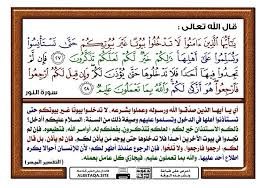 قال الله تعالى :
يَٰٓأَيُّهَا ٱلَّذِينَ ءَامَنُوا۟ لَا تَدْخُلُوا۟ بُيُوتًا غَيْرَ بُيُوتِكُمْ حَتَّىٰ تَسْتَأْنِسُوا۟
وَتُسَلِّمُوا۟ عَلَىٰٓ أَهْلِهَا ذَٰلِكُمْ خَيْرٌ لَّكُمْ لَعَلَّكُمْ تَذَكَّرُونَ ٢٧ فَإِن لَّمْ
تَجِدُوا۟ فِيهَآ أَحَدًا فَلَا تَدْخُلُوهَا حَتَّىٰ يُؤْذَنَ لَكُمْ وَإِن قِيلَ لَكُمُ ٱرْجِعُوا۟
فَٱرْجِعُوا۟ هُوَ أَزْكَىٰ لَكُمْ وَٱللَّهُ بِمَا تَعْمَلُونَ عَلِيمٌ ٢٨
سورة النور
أي يا أيها الذين صدَّقوا الله ورسوله وعملوا بشرعه، لا تدخلوا بيوتًا غير بيوتكم حتى
تستأذنوا أهلها في الدخول وتسلموا عليهم وصيغة ذلك من السنة: السلام عليكم أأدخل؟
ذلكم الاستئذان خير لكم؛ لعلكم تتذكرون
تجدوا في بيوت الآخرين أحدًا فلا تدخلوها حتى يوجد من يأذن لكم، فإن لم يأذن، بل
قال لكم: ارجعوا فارجعوا
عليها. والله بما تعملون عليم، فيجازي كل عامل بعمله.
[التفسير الميسر]
ALBETAQA.SITE